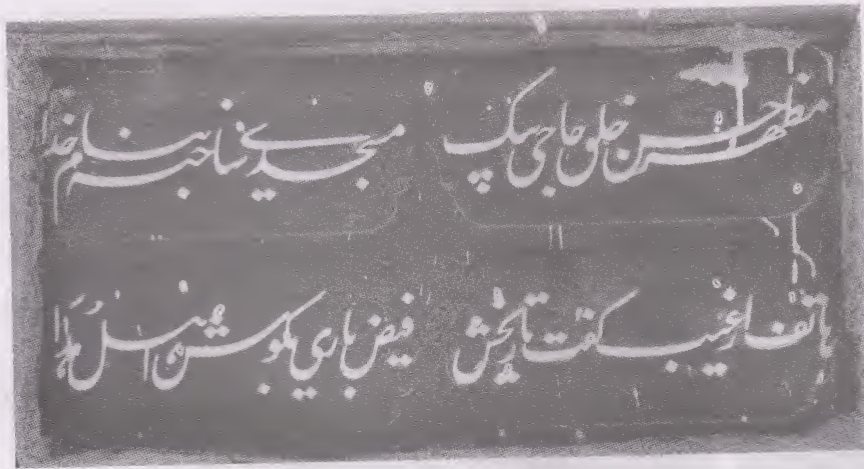 مظهر حسن خلق حاجی بیک مسجدی ساخت بنام خدا
هاتف از غیب کفت تاریخش فیض باری بکوش اهل هدا